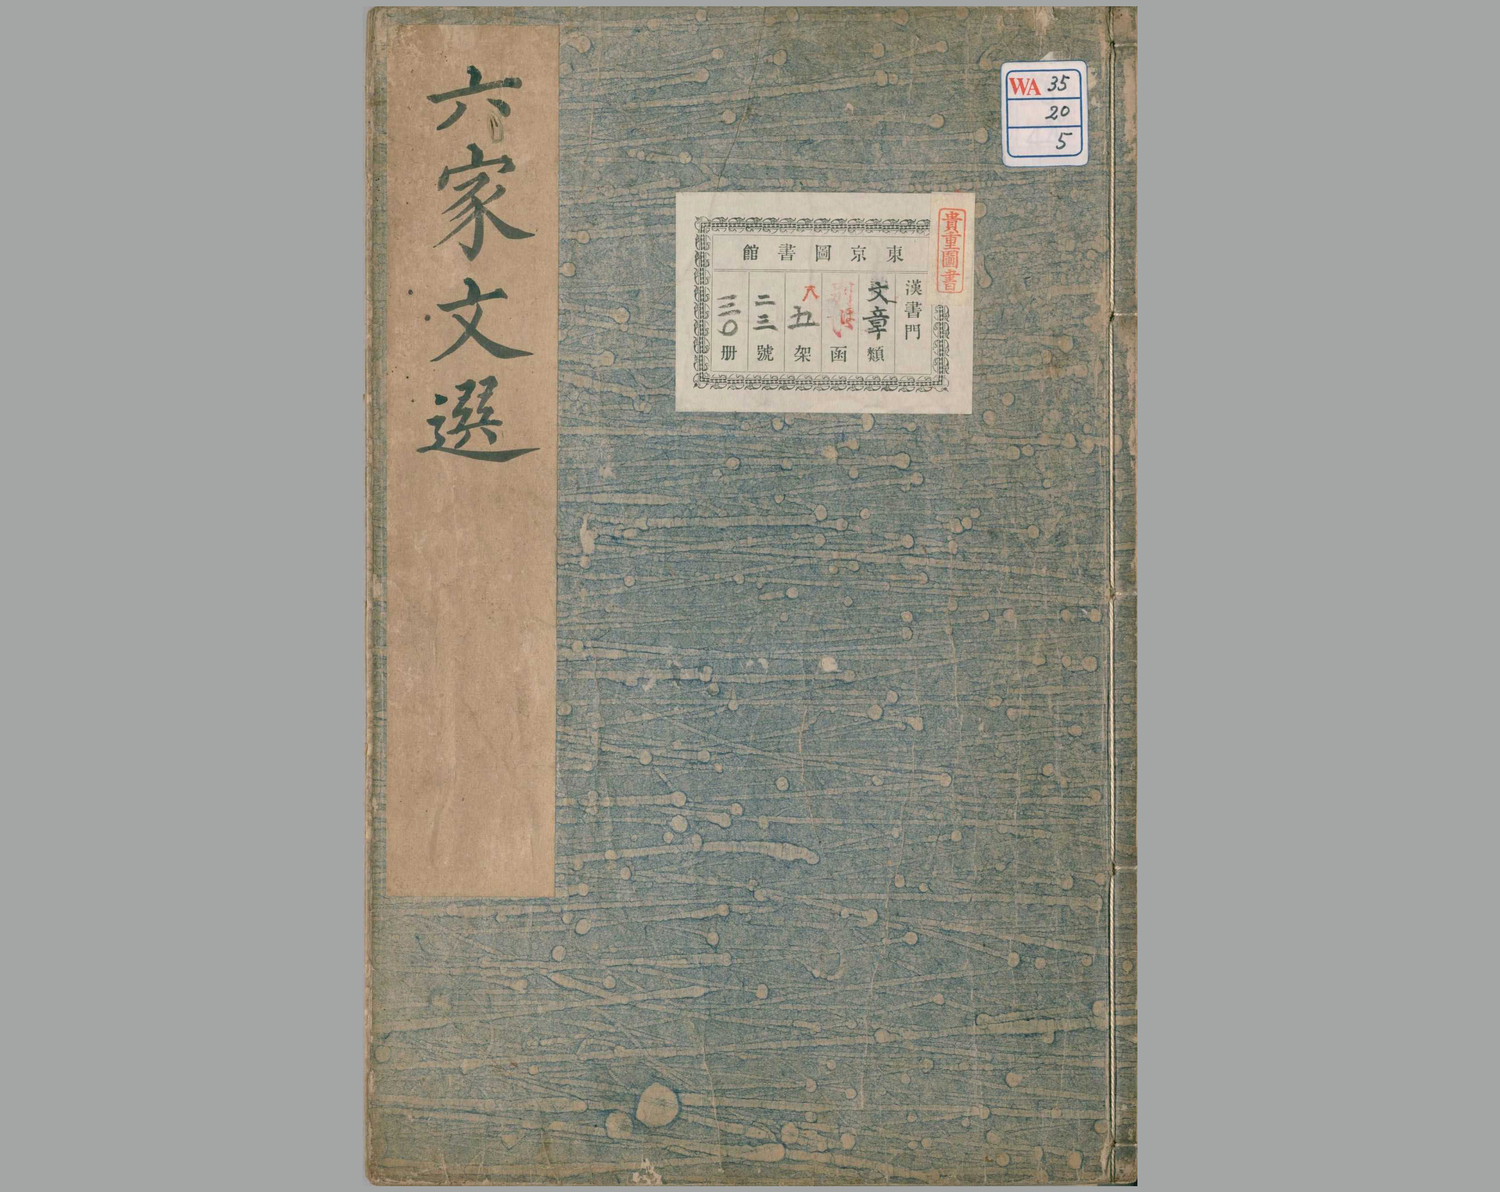 六家文選
WA 35
20
5
貴重圖書
東京圖書館
漢書門
文章類
函
五架
二三號
三〇册